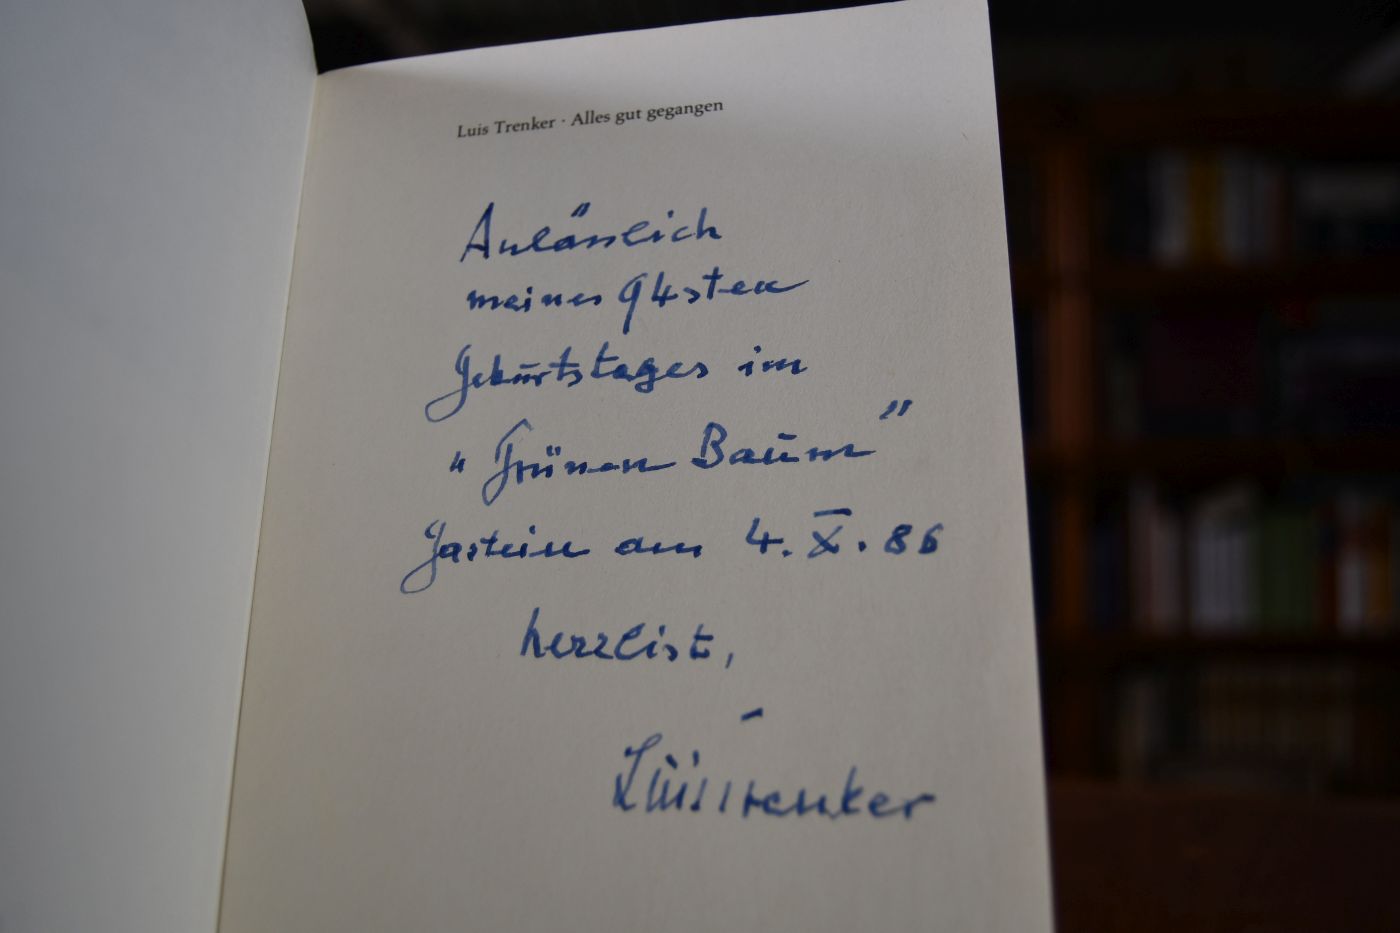 Luis Trenker · Alles gut gegangen
Anlässlich
meines 94sten
Geburtstages im
"Grünen Baum"
Gastein am 4. X. 86
herzlist,
Luis Trenker